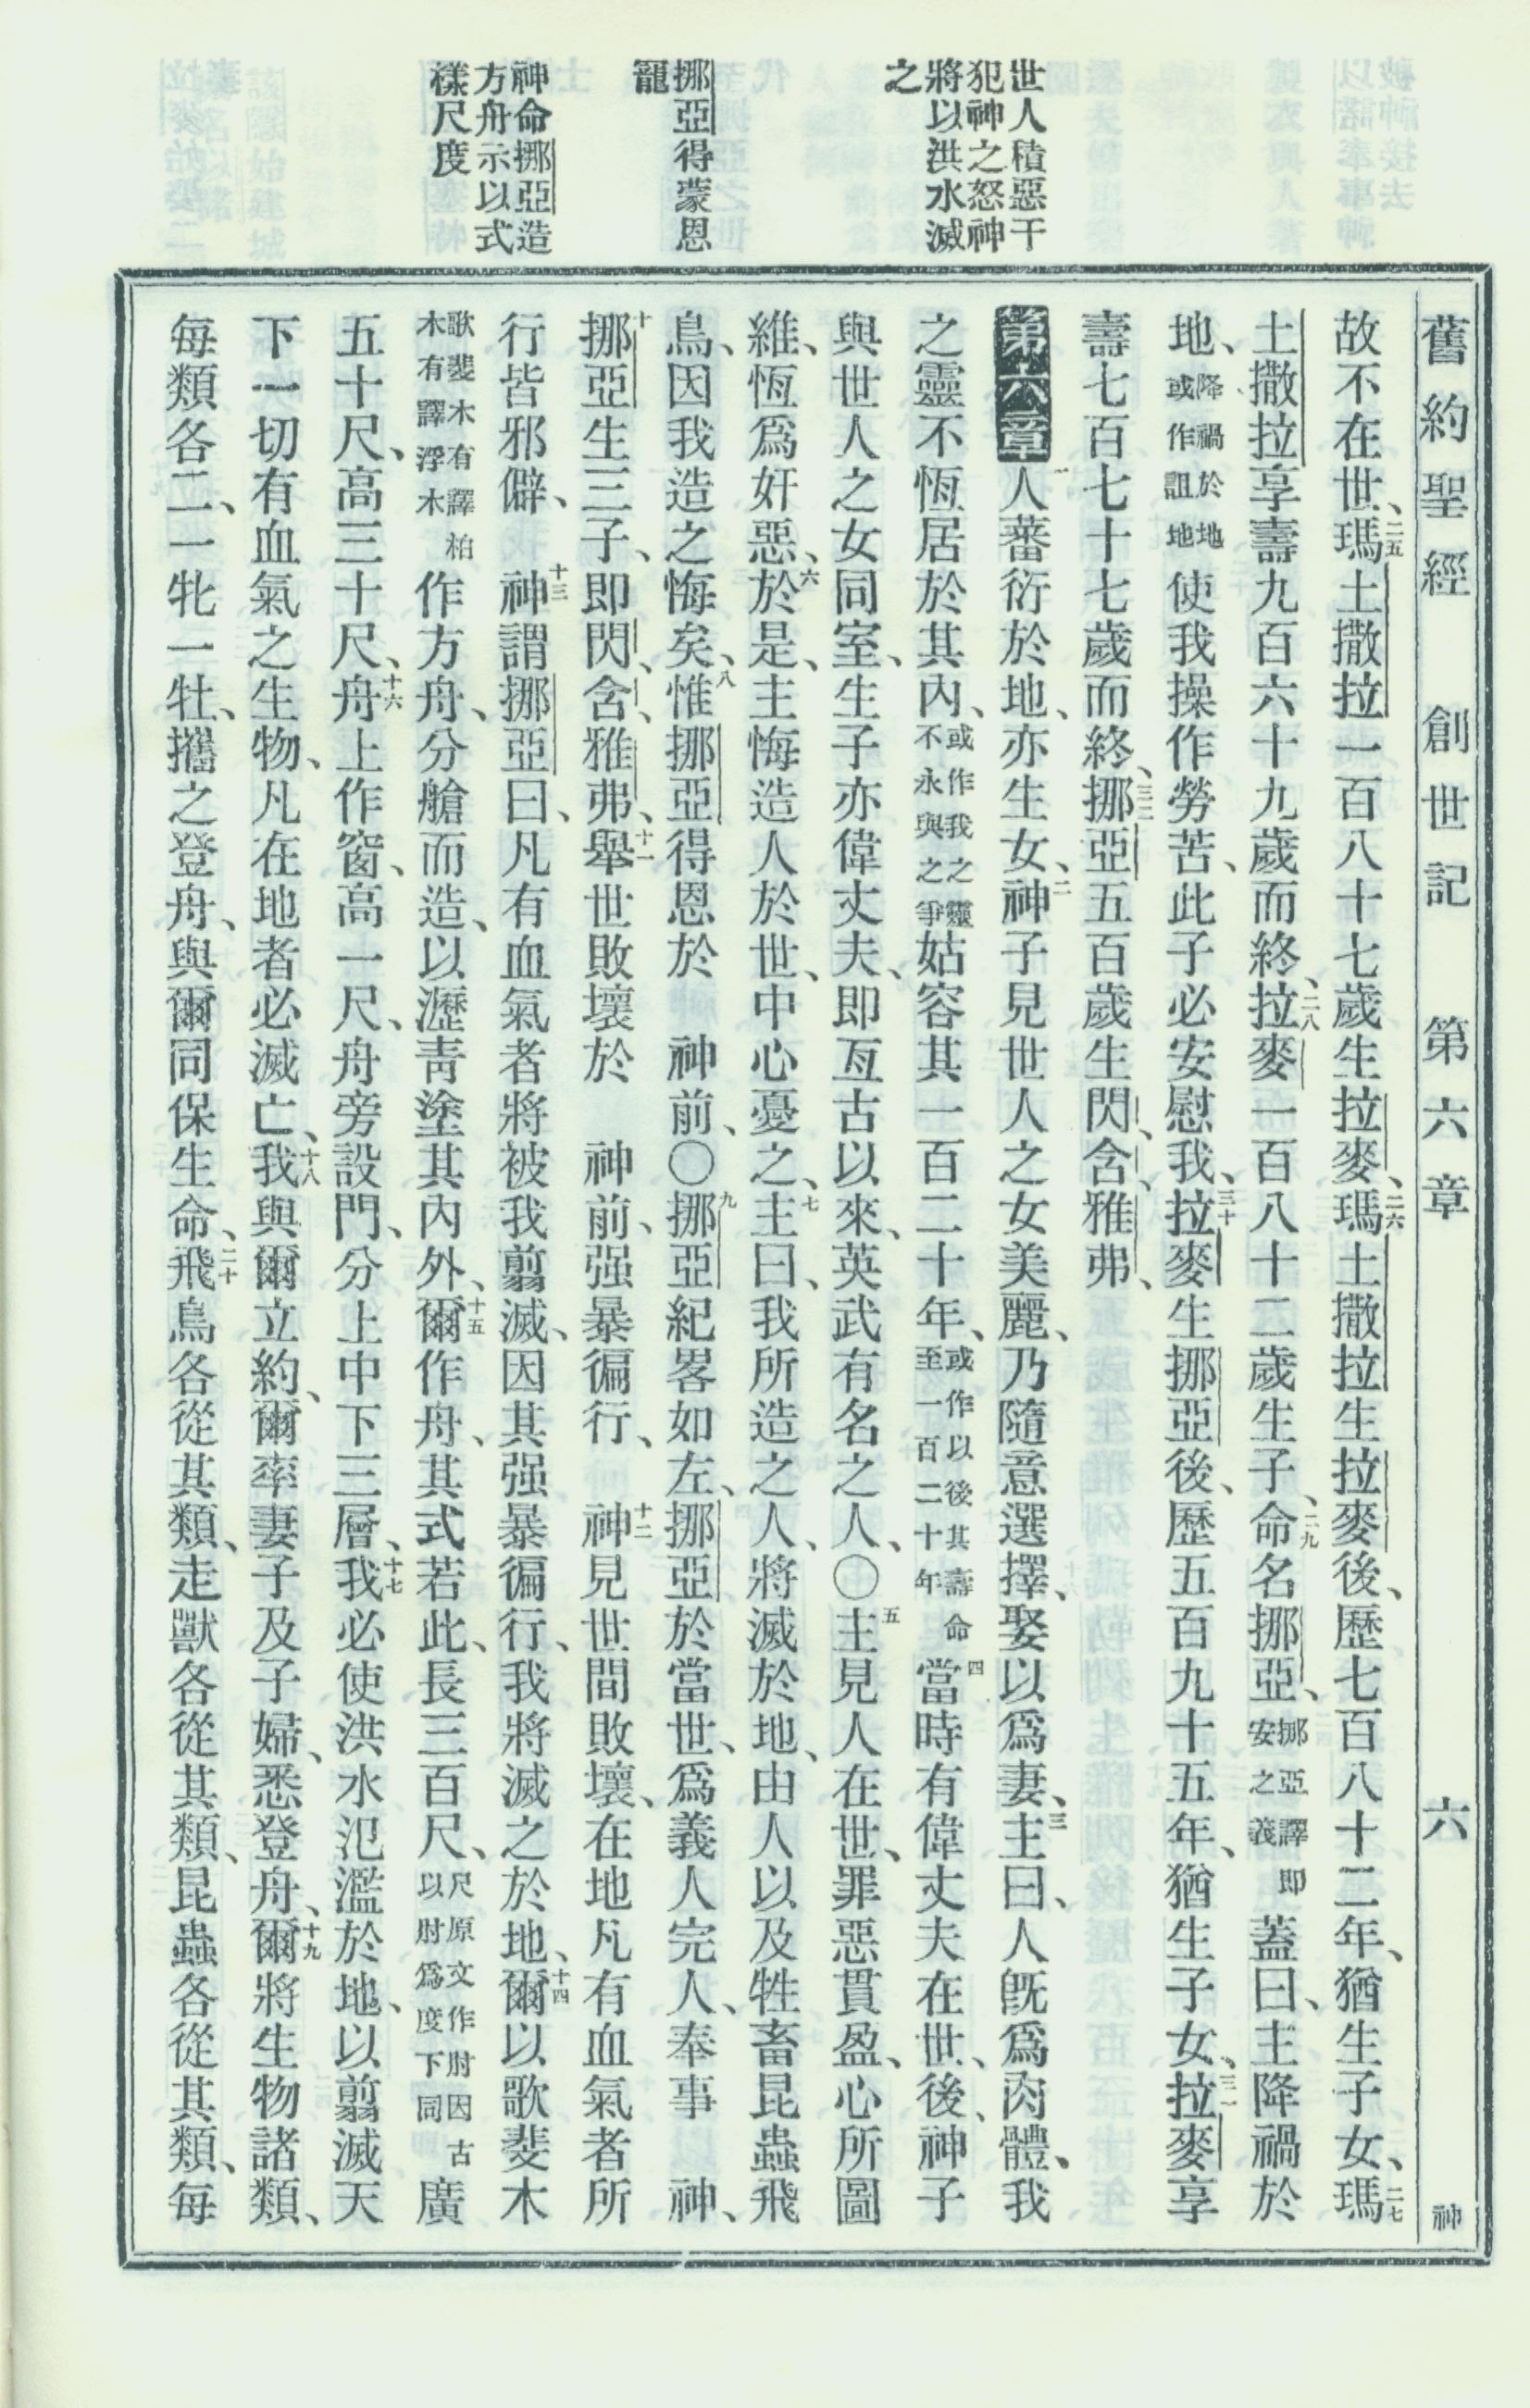 舊約聖經 創世記 第六章 六 神
世人積惡干
犯神之怒神
將以洪水滅
之
挪亞得蒙恩
寵
神命挪亞造
方舟示以式
樣尺度
故不在世、二五瑪土撒拉一百八十七歲生拉麥、二六瑪土撒拉生拉麥後、歷七百八十二年、猶生子女、二七瑪
土撒拉享壽九百六十九歲而終、二八拉麥一百八十二歲生子、二九命名挪亞、挪亞譯即安之義蓋曰、主降禍於
地、降禍於地或作詛地使我操作勞苦、此子必安慰我、三十拉麥生挪亞後、歷五百九十五年、猶生子女、三一拉麥享
壽七百七十七歲而終、三二挪亞五百歲生閃、含、雅弗、
第六章一人蕃衍於地、亦生女、二神子見世人之女美麗、乃隨意選擇、娶以爲妻、三主曰、人既爲肉體、我
之靈不恆居於其內、或作我之靈不永與之爭姑容其一百二十年、或作以後其壽命至一百二十年四當時有偉丈夫在世、後、神子
與世人之女同室、生子亦偉丈夫、即亙古以來、英武有名之人、〇五主見人在世、罪惡貫盈、心所圖
維、恆爲奸惡、六於是、主悔造人於世、中心憂之、七主曰、我所造之人、將滅於地、由人以及牲畜昆蟲飛
鳥、因我造之悔矣、八惟挪亞得恩於 神前、〇九挪亞紀畧如左、挪亞於當世、爲義人完人、奉事 神、
十挪亞生三子、即閃、含、雅弗、十一舉世敗壞於 神前、强暴徧行、十二神見世間敗壞、在地凡有血氣者所
行皆邪僻、十三神謂挪亞曰、凡有血氣者將被我翦滅、因其强暴徧行、我將滅之於地、十四爾以歌斐木
歌斐木有譯柏木有譯浮木作方舟、分艙而造、以瀝靑塗其內外、十五爾作舟、其式若此、長三百尺、尺原文作肘因古以肘爲度下同廣
五十尺、高三十尺、十六舟上作窗、高一尺、舟旁設門、分上中下三層、十七我必使洪水氾濫於地、以翦滅天
下一切有血氣之生物、凡在地者必滅亡、十八我與爾立約、爾率妻子及子婦、悉登舟、十九爾將生物諸類、
每類各二、一牝一牡、攜之登舟、與爾同保生命、二十飛鳥各從其類、走獸各從其類、昆蟲各從其類、每